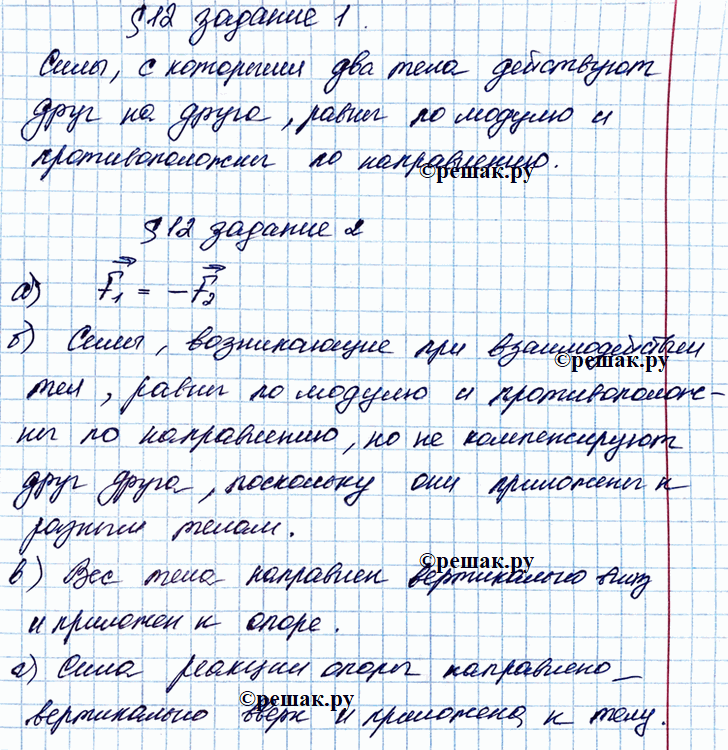 §12 задание 1.
Силы, с которыми два тела действуют
друг на друга, равны по модулю и
противоположны по направлению.
©решак.ру
§12 задание 2
а) F₁ = −F₂
б) Силы, возникающие при взаимодействии
©решак.ру
тел, равны по модулю и противополож-
ны по направлению, но не компенсируют
друг друга, поскольку они приложены к
разным телам.
©решак.ру
в) Вес тела направлен вертикально вниз
и приложен к опоре.
г) Сила реакции опоры направлено
©решак.ру
вертикально вверх и приложена к телу.